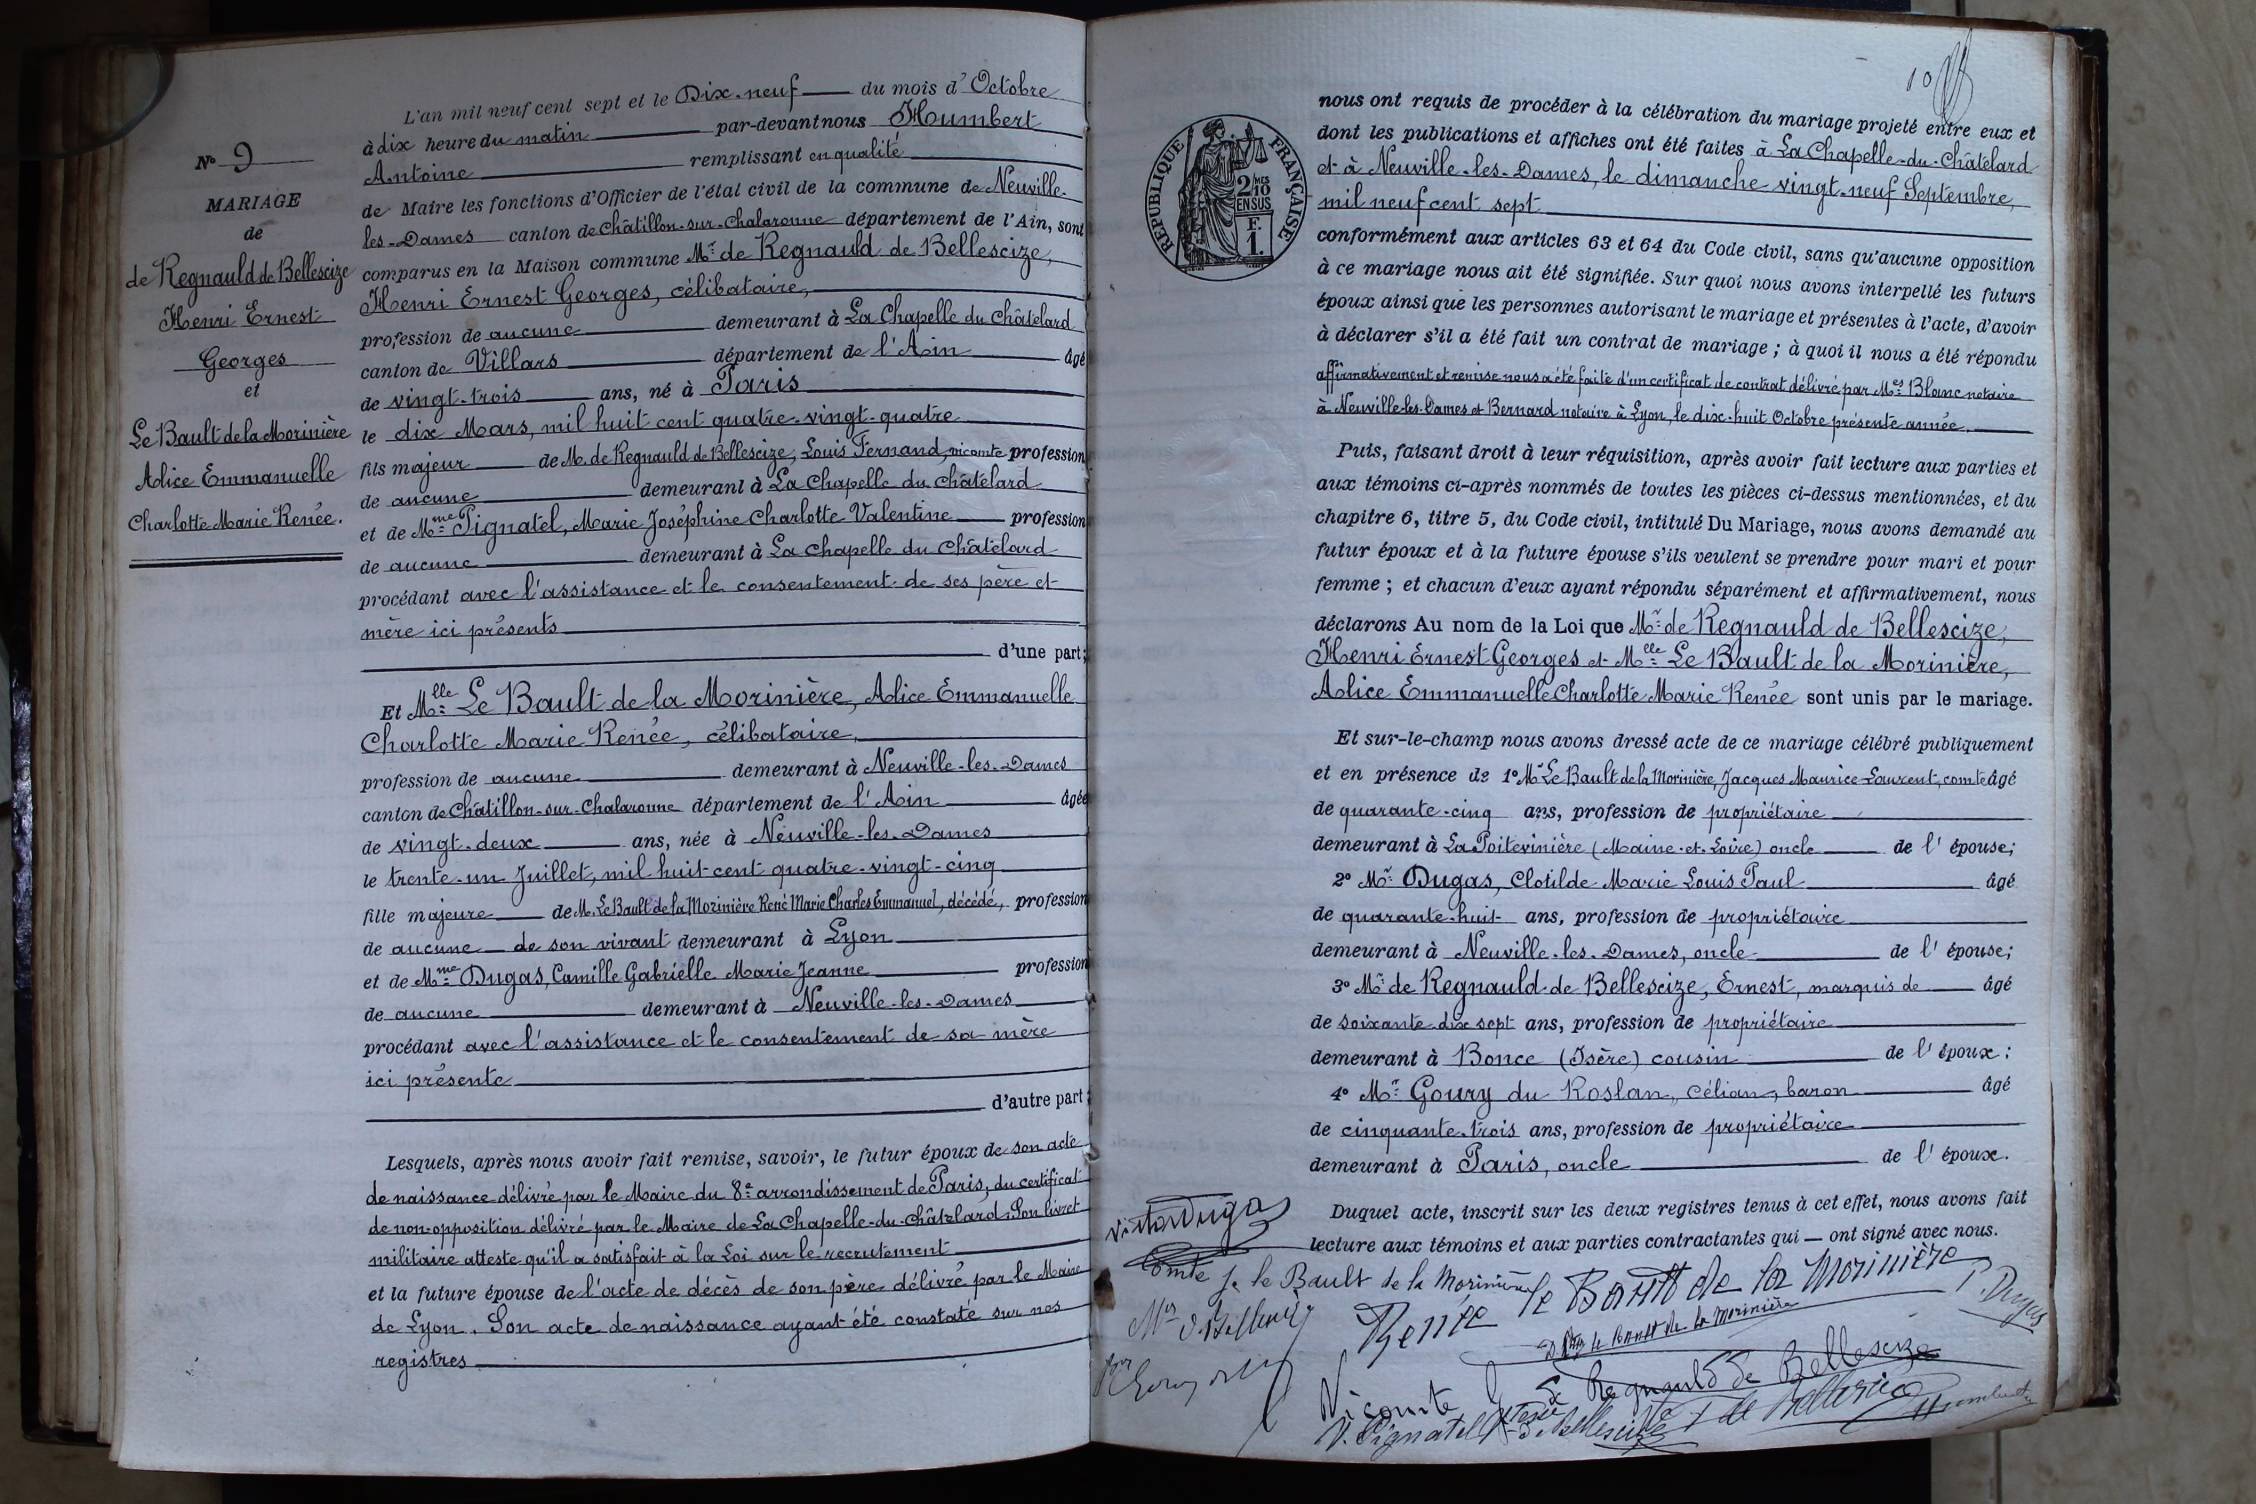 N° 9
MARIAGE
de
de Regnauld de Bellescize
Henri Ernest
Georges
et
Le Bault de la Morinière
Alice Emmanuelle
Charlotte Marie Renée.
L'an mil neuf cent sept et le Dix-neuf du mois d'Octobre
à dix heure du matin par-devant nous Humbert
Antoine remplissant en qualité
de Maire les fonctions d'Officier de l'état civil de la commune de Neuville-
les-Dames canton de Châtillon-sur-Chalaronne département de l'Ain, sont
comparus en la Maison commune Mr de Regnauld de Bellescize,
Henri Ernest Georges, célibataire,
profession de aucune demeurant à La Chapelle du Châtelard
canton de Villars département de l'Ain âgé
de vingt-trois ans, né à Paris
le dix Mars, mil huit cent quatre-vingt-quatre
fils majeur de M. de Regnauld de Bellescize, Louis Fernand, vicomte profession
de aucune demeurant à La Chapelle du Châtelard
et de Mme Pignatel, Marie Joséphine Charlotte Valentine profession
de aucune demeurant à La Chapelle du Châtelard
procédant avec l'assistance et le consentement de ses père et
mère ici présents
d'une part;
Et Mlle Le Bault de la Morinière, Alice Emmanuelle
Charlotte Marie Renée, célibataire,
profession de aucune demeurant à Neuville-les-Dames
canton de Châtillon-sur-Chalaronne département de l'Ain âgée
de vingt-deux ans, née à Neuville-les-Dames
le trente-un Juillet, mil huit-cent quatre-vingt-cinq
fille majeure de M. Le Bault de la Morinière René Marie Charles Emmanuel, décédé, profession
de aucune de son vivant demeurant à Lyon
et de Mme Dugas, Camille Gabrielle Marie Jeanne profession
de aucune demeurant à Neuville-les-Dames
procédant avec l'assistance et le consentement de sa mère
ici présente
d'autre part;
Lesquels, après nous avoir fait remise, savoir, le futur époux de son acte
de naissance délivré par le Maire du 8e arrondissement de Paris, du certificat
de non-opposition délivré par le Maire de La Chapelle-du-Châtelard; Son livret
militaire atteste qu'il a satisfait à la Loi sur le recrutement
et la future épouse de l'acte de décès de son père délivré par le Maire
de Lyon. Son acte de naissance ayant été constaté sur nos
registres
10
RÉPUBLIQUE FRANÇAISE
2 MES
10
EN SUS
F.
1.
nous ont requis de procéder à la célébration du mariage projeté entre eux et
dont les publications et affiches ont été faites à La Chapelle-du-Châtelard
et à Neuville-les-Dames, le dimanche vingt-neuf Septembre,
mil neuf cent sept
conformément aux articles 63 et 64 du Code civil, sans qu'aucune opposition
à ce mariage nous ait été signifiée. Sur quoi nous avons interpellé les futurs
époux ainsi que les personnes autorisant le mariage et présentes à l'acte, d'avoir
à déclarer s'il a été fait un contrat de mariage; à quoi il nous a été répondu
affirmativement et remise nous a été faite d'un certificat de contrat délivré par Mes Blanc notaire
à Neuville-les-Dames et Bernard notaire à Lyon, le dix-huit Octobre présente année.
Puis, faisant droit à leur réquisition, après avoir fait lecture aux parties et
aux témoins ci-après nommés de toutes les pièces ci-dessus mentionnées, et du
chapitre 6, titre 5, du Code civil, intitulé Du Mariage, nous avons demandé au
futur époux et à la future épouse s'ils veulent se prendre pour mari et pour
femme; et chacun d'eux ayant répondu séparément et affirmativement, nous
déclarons Au nom de la Loi que Mr de Regnauld de Bellescize,
Henri Ernest Georges et Mlle Le Bault de la Morinière,
Alice Emmanuelle Charlotte Marie Renée sont unis par le mariage.
Et sur-le-champ nous avons dressé acte de ce mariage célébré publiquement
et en présence de 1° Mr Le Bault de la Morinière, Jacques Maurice Laurent, comte âgé
de quarante-cinq ans, profession de propriétaire
demeurant à La Poitevinière (Maine-et-Loire) oncle de l'épouse;
2° Mr Dugas, Clotilde Marie Louis Paul âgé
de quarante-huit ans, profession de propriétaire
demeurant à Neuville-les-Dames, oncle de l'épouse;
3° Mr de Regnauld de Bellescize, Ernest, marquis de âgé
de soixante-dix sept ans, profession de propriétaire
demeurant à Bonce (Isère) cousin de l'époux;
4° Mr Goury du Roslan, Célian, baron âgé
de cinquante-trois ans, profession de propriétaire
demeurant à Paris, oncle de l'époux.
Duquel acte, inscrit sur les deux registres tenus à cet effet, nous avons fait
lecture aux témoins et aux parties contractantes qui — ont signé avec nous.
Victor Dugas
Comte J. le Bault de la Morinière
Renée le Bault de la Morinière
P. Dugas
le Bault de la Morinière
de Regnauld de Bellescize
Vicomte
V. Pignatel
de Bellescize
Humbert